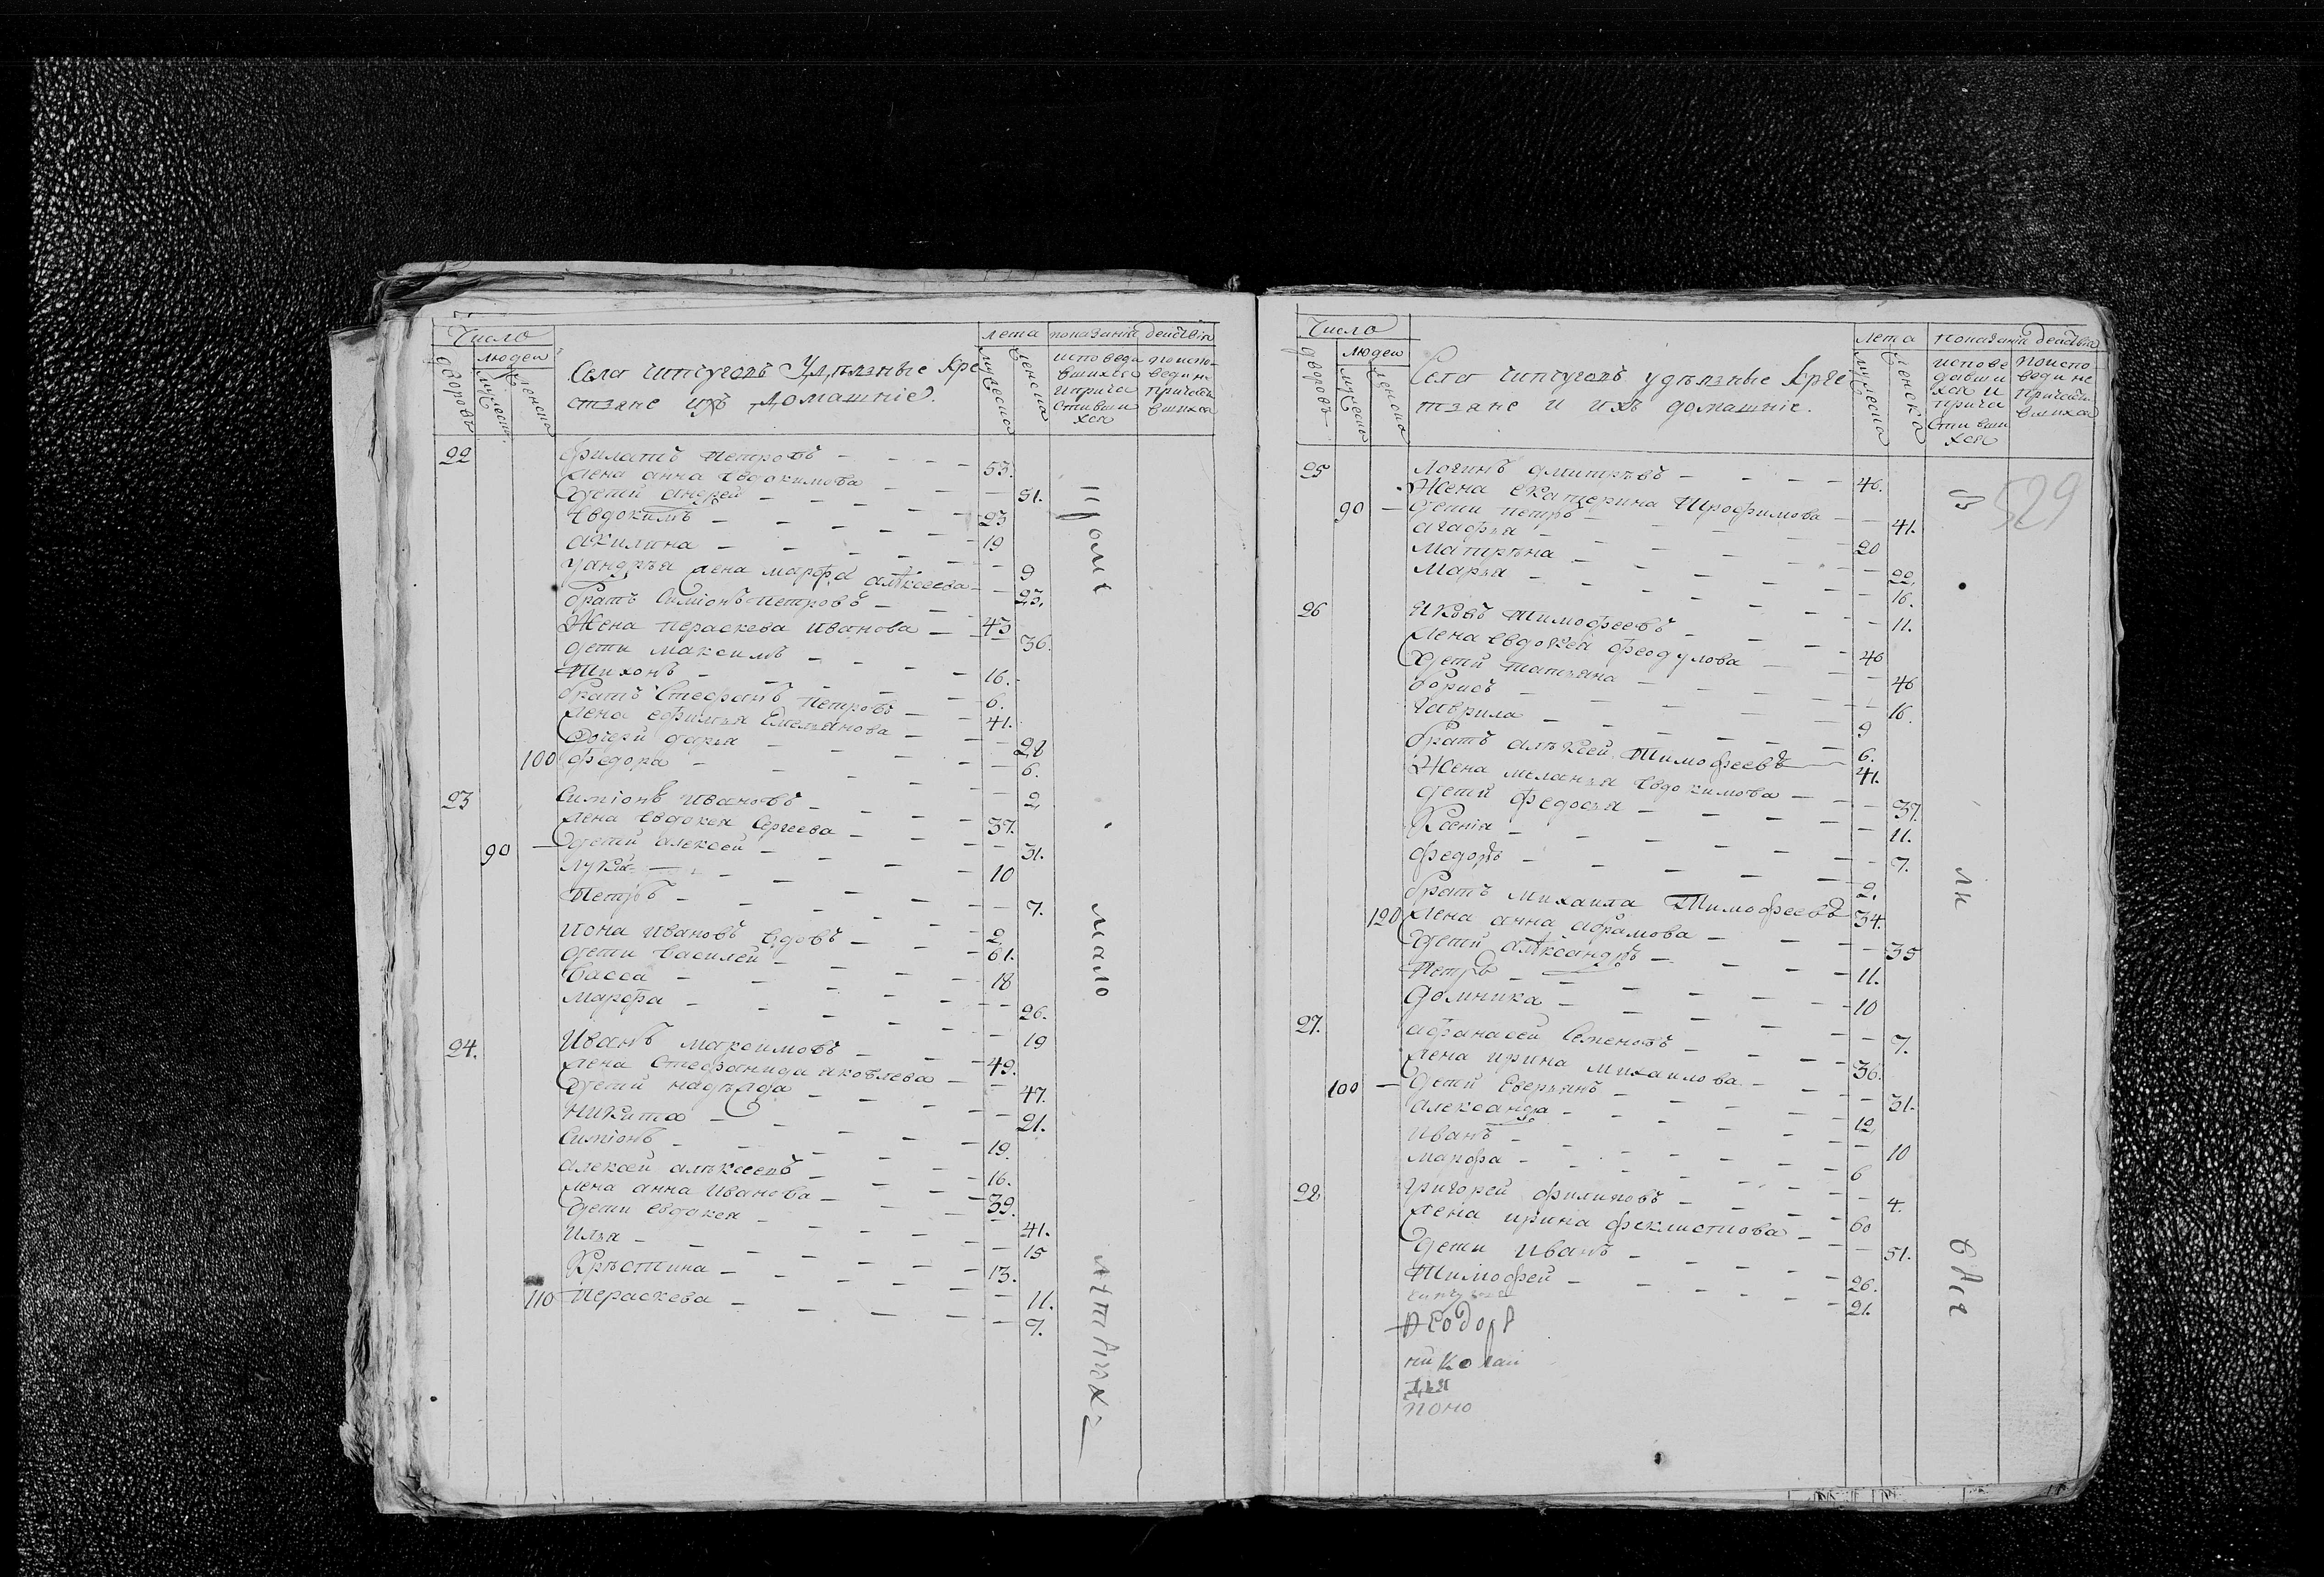 Число
людей
дворовъ
мужеска
женска
Села чипсуговъ Удѣлные Кре
стяне ихъ домашніе.
лета
мужеска
женска
показаніи действія
исповеда
вшихся
и прича
стивши
хся
поиспо
ведине
причаст
вшихся
22 Филатъ петровъ - 53.
Жена анна евдокимова - 51.
Дети андрей - 23
Евдокимъ - 19
акилина - 9
у андрѣя жена марфа алѣксеева - 23.
братъ Симіонъ петровъ - 43
Жена параскева иванова - 36.
дети максимъ - 16.
Тихонъ - 6.
братъ Стефанъ петровъ - 41.
Жена ефимья Емельянова - 28
Дочери дарья - 6.
100 федора - 2
23 Симіонъ ивановъ - 37.
Жена евдокея Сергеева - 31.
90 - Дети алексей - 10
лукея - 7.
Петръ - 2.
Иона ивановъ вдовъ - 61.
дети василей - 18
васса - 26.
марфа - 19
24. Иванъ максимовъ - 49.
Жена Стефанида яковлева - 47.
Дети надѣжда - 21.
никита - 19.
Симіонъ - 16.
алексей алѣксеевъ - 39.
Жена анна иванова - 41.
Дети евдокея - 15
илья - 13.
Крѣстина - 11.
110 Параскева - 7.
мало
Число
людей
дворовъ
мужеска
женска
Села чипсуговъ удѣлные Крес
тяне и ихъ домашніе.
лета
мужеска
женска
показаніи действія
испове
давши
хся и
прича
стивши
хся
поиспо
ведине
причаст
вшихся
529
25 Логинъ дмитрѣвъ - 46.
Жена екатерина Трофимова - 41.
90 - Дети петръ - 20
агафья - 22.
матрѣна - 16.
марья - 11.
26 Яковъ Тимофеевъ - 46
Жена евдокея феодулова - 46
Дети татьяна - 16.
борисъ - 9
гаврила - 6.
братъ алѣксей Тимофеевъ - 41.
Жена меланья евдокимова - 37.
дети федосья - 11.
Ксенія - 7.
федоръ - 2.
братъ михаила Тимофеевъ 34.
120 Жена анна абрамова - 35
Дети алѣксандръ - 11.
Петръ - 10
домника - 7.
27. афанасей Семеновъ - 36.
Жена ирина михаилова - 31.
100 - Дети Северьянъ - 12
александра - 10
иванъ - 6
марфа - 4.
28 григорей филиповъ - 60
Жена ирина феклистова - 51.
дети иванъ - 26.
Тимофей - 21.
николаи
поно
ли